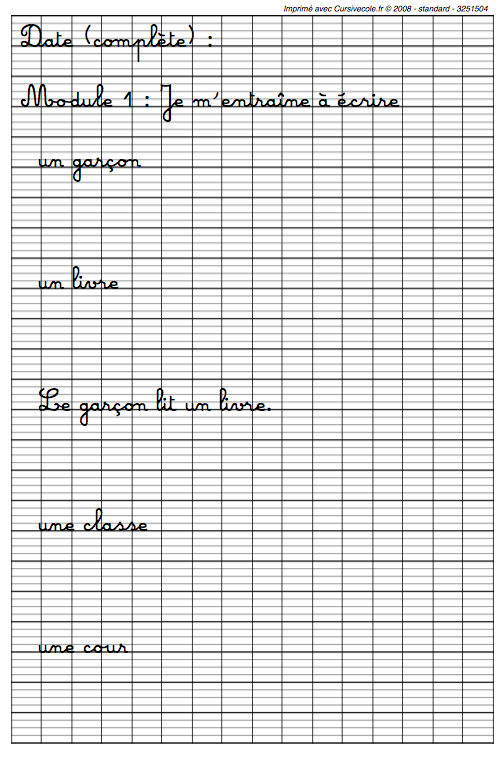 Imprimé avec Cursivecole.fr © 2008 - standard - 3251504
Date (complète) :
Module 1 : Je m'entraîne à écrire
un garçon
un livre
Le garçon lit un livre.
une classe
une cour